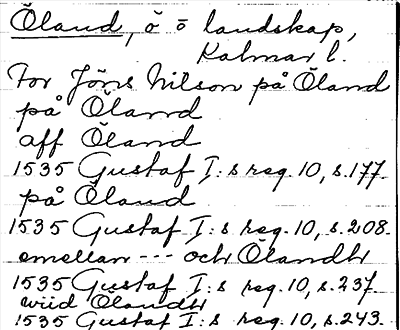 Öland, ö o landskap,
Kalmar l.
For Jöns Nilson på Öland
på Öland
aff Öland
1535 Gustaf I:s reg. 10, s. 177.
på Öland
1535 Gustaf I:s reg. 10, s. 208.
emellan --- och Ölandh
1535 Gustaf I:s reg. 10, s. 237.
wiid Ölandh
1535 Gustaf I:s reg. 10, s. 243.